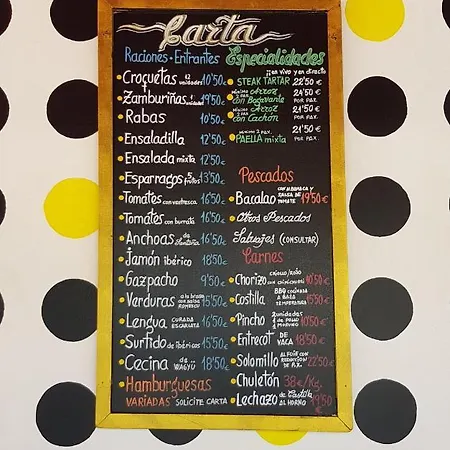 Carta
Raciones - Entrantes
Croquetas 12 unidades 10'50
Zamburiñas 7 unidades 19'50€
Rabas 10'50€
Ensaladilla 12'50€
Ensalada mixta 12'50€
Esparragos 5 frutos 13'50€
Tomates con ventresca 16'50€
Tomates con burrata 16'50€
Anchoas de Santoña 16'50€
Jamón ibérico 18'50€
Gazpacho 9'50€
Verduras a la brasa con salsa romesco 15'50€
Lengua curada escarlata 16'50€
Surtido de ibéricos 15'50€
Cecina de WAGYU 18'50€
Hamburguesas
VARIADAS SOLICITE CARTA
Especialidades
¡¡en vivo y en directo
STEAK TARTAR 22'50€
mínimo 2 pax. Arroz con Bogavante 24'50€ POR PAX.
mínimo 2 pax. Arroz con Cachón 21'50€ POR PAX.
MINIMO 2 PAX. PAELLA mixta 21'50€ POR PAX.
Pescados
Bacalao SALSA DE TOMATE 19'50€
Otros Pescados
Salvajes (CONSULTAR)
Carnes
Chorizo CRIOLLO/ROJO CON CHIMICHURRI 10'50€
Costilla BBQ COCINADA A BAJA TEMPERATURA 15'50€
Pincho 2 unidades 1 de POLLO 1 MORUNO 10'50€
Entrecot DE VACA 18'50€
Solomillo AL FOIE CON REDUCCION DE P.X. 22'50€
Chuletón 38€/Kg.
Lechazo de Castilla AL HORNO 19'50€